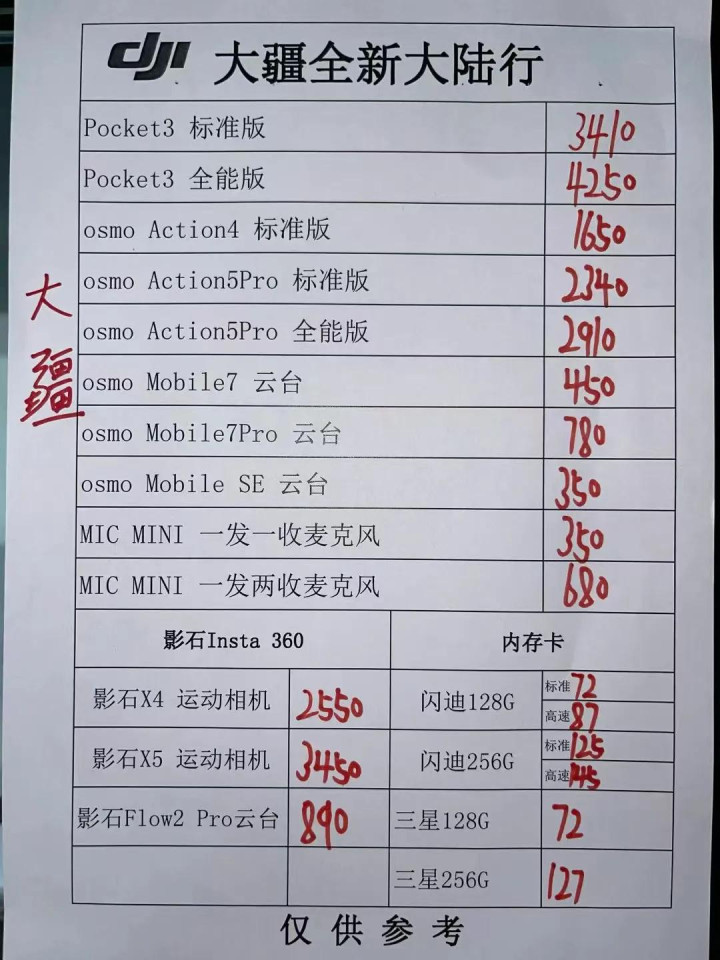 dji 大疆全新大陆行
Pocket3 标准版 3410
Pocket3 全能版 4250
osmo Action4 标准版 1650
osmo Action5Pro 标准版 2340
osmo Action5Pro 全能版 2910
大疆
osmo Mobile7 云台 450
osmo Mobile7Pro 云台 780
osmo Mobile SE 云台 350
MIC MINI 一发一收麦克风 350
MIC MINI 一发两收麦克风 680
影石Insta 360 内存卡
影石X4 运动相机 2550 闪迪128G 标准 72
高速 87
影石X5 运动相机 3450 闪迪256G 标准 125
高速 145
影石Flow2 Pro云台 890 三星128G 72
三星256G 127
仅供参考